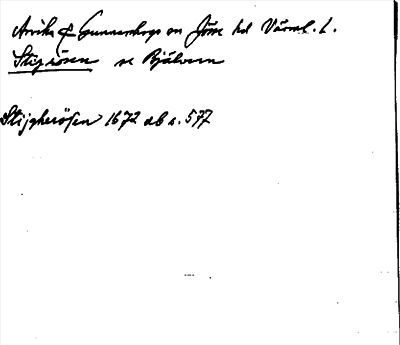 Arvika & Gunnarskogs sn Jösse hd Värml. l.
Stigrösen se Bjälvern
Stijgherösen 1672 db s. 577